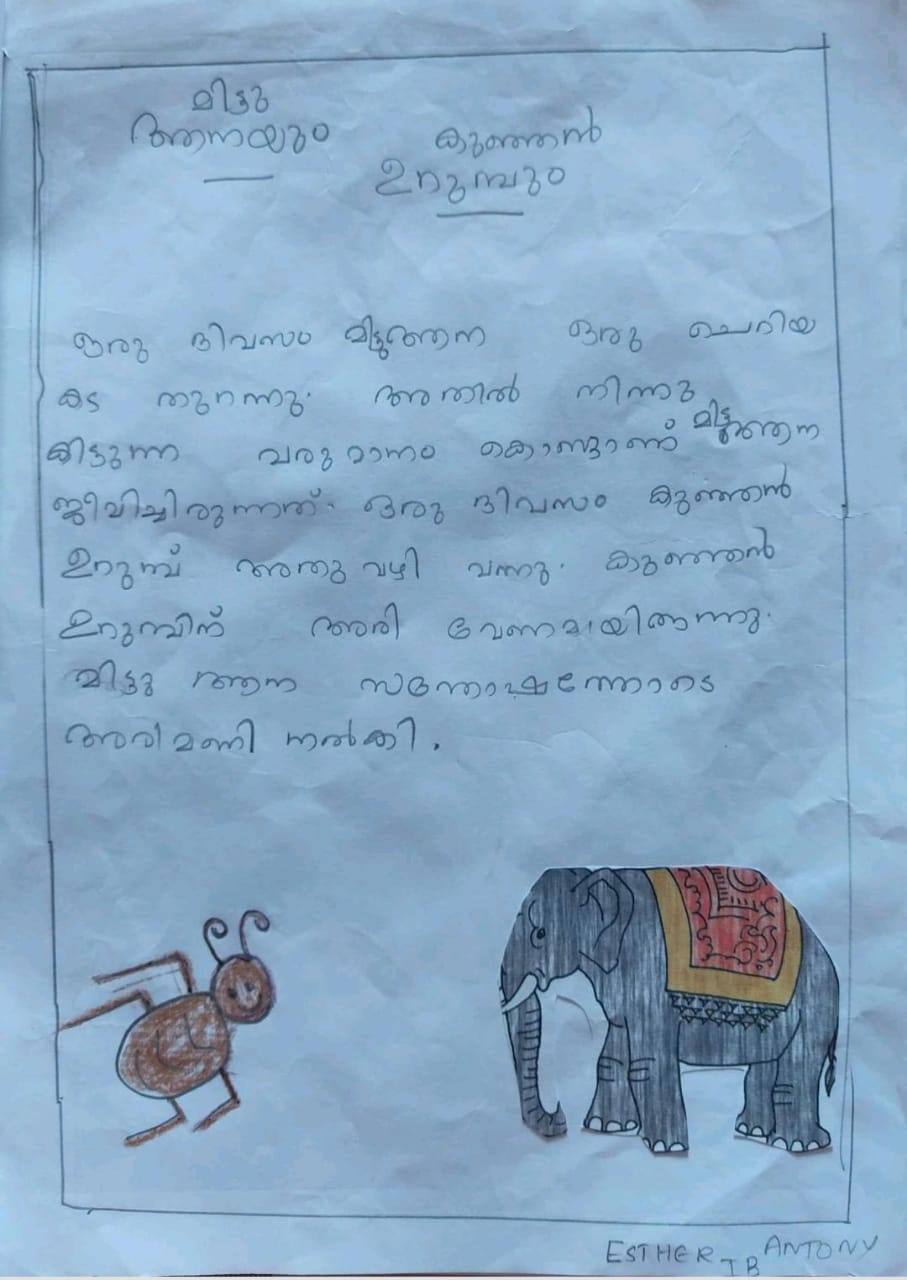 മിട്ടു
ആനയും കുഞ്ഞൻ
ഉറുമ്പും
ഒരു ദിവസം മിട്ടുആന ഒരു ചെറിയ
കട തുറന്നു. അതിൽ നിന്നു
കിട്ടുന്ന വരുമാനം കൊണ്ടാണ് മിട്ടുആന
ജീവിച്ചിരുന്നത്. ഒരു ദിവസം കുഞ്ഞൻ
ഉറുമ്പ് അതു വഴി വന്നു. കുഞ്ഞൻ
ഉറുമ്പിന് അരി വേണമായിരുന്നു.
മിട്ടു ആന സന്തോഷത്തോടെ
അരിമണി നൽകി.
ESTHER ANTONY
1B